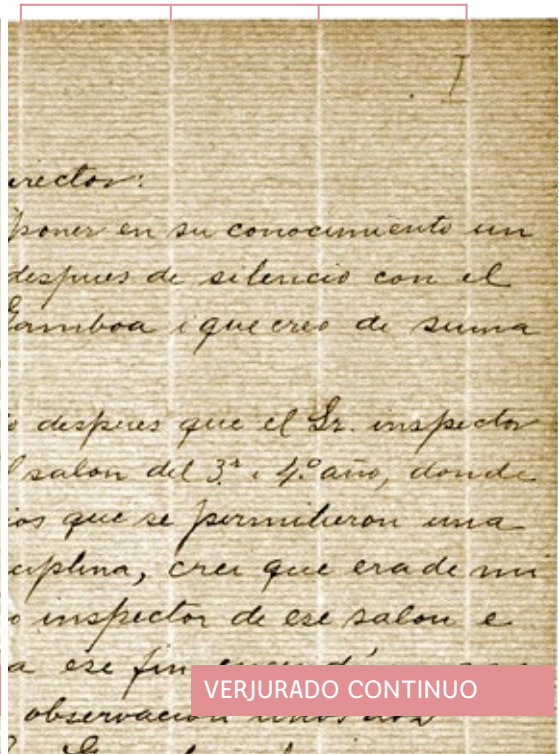 I
irector:
poner en su conocimiento un
despues de silencio con el
Gamboa i que creo de suma
despues que el Sr. inspector
salon del 3º i 4º año, donde
ios que se permitieron una
ciplina, crei que era de mi
o inspector de ese salon e
a ese fin
VERJURADO CONTINUO
observacion